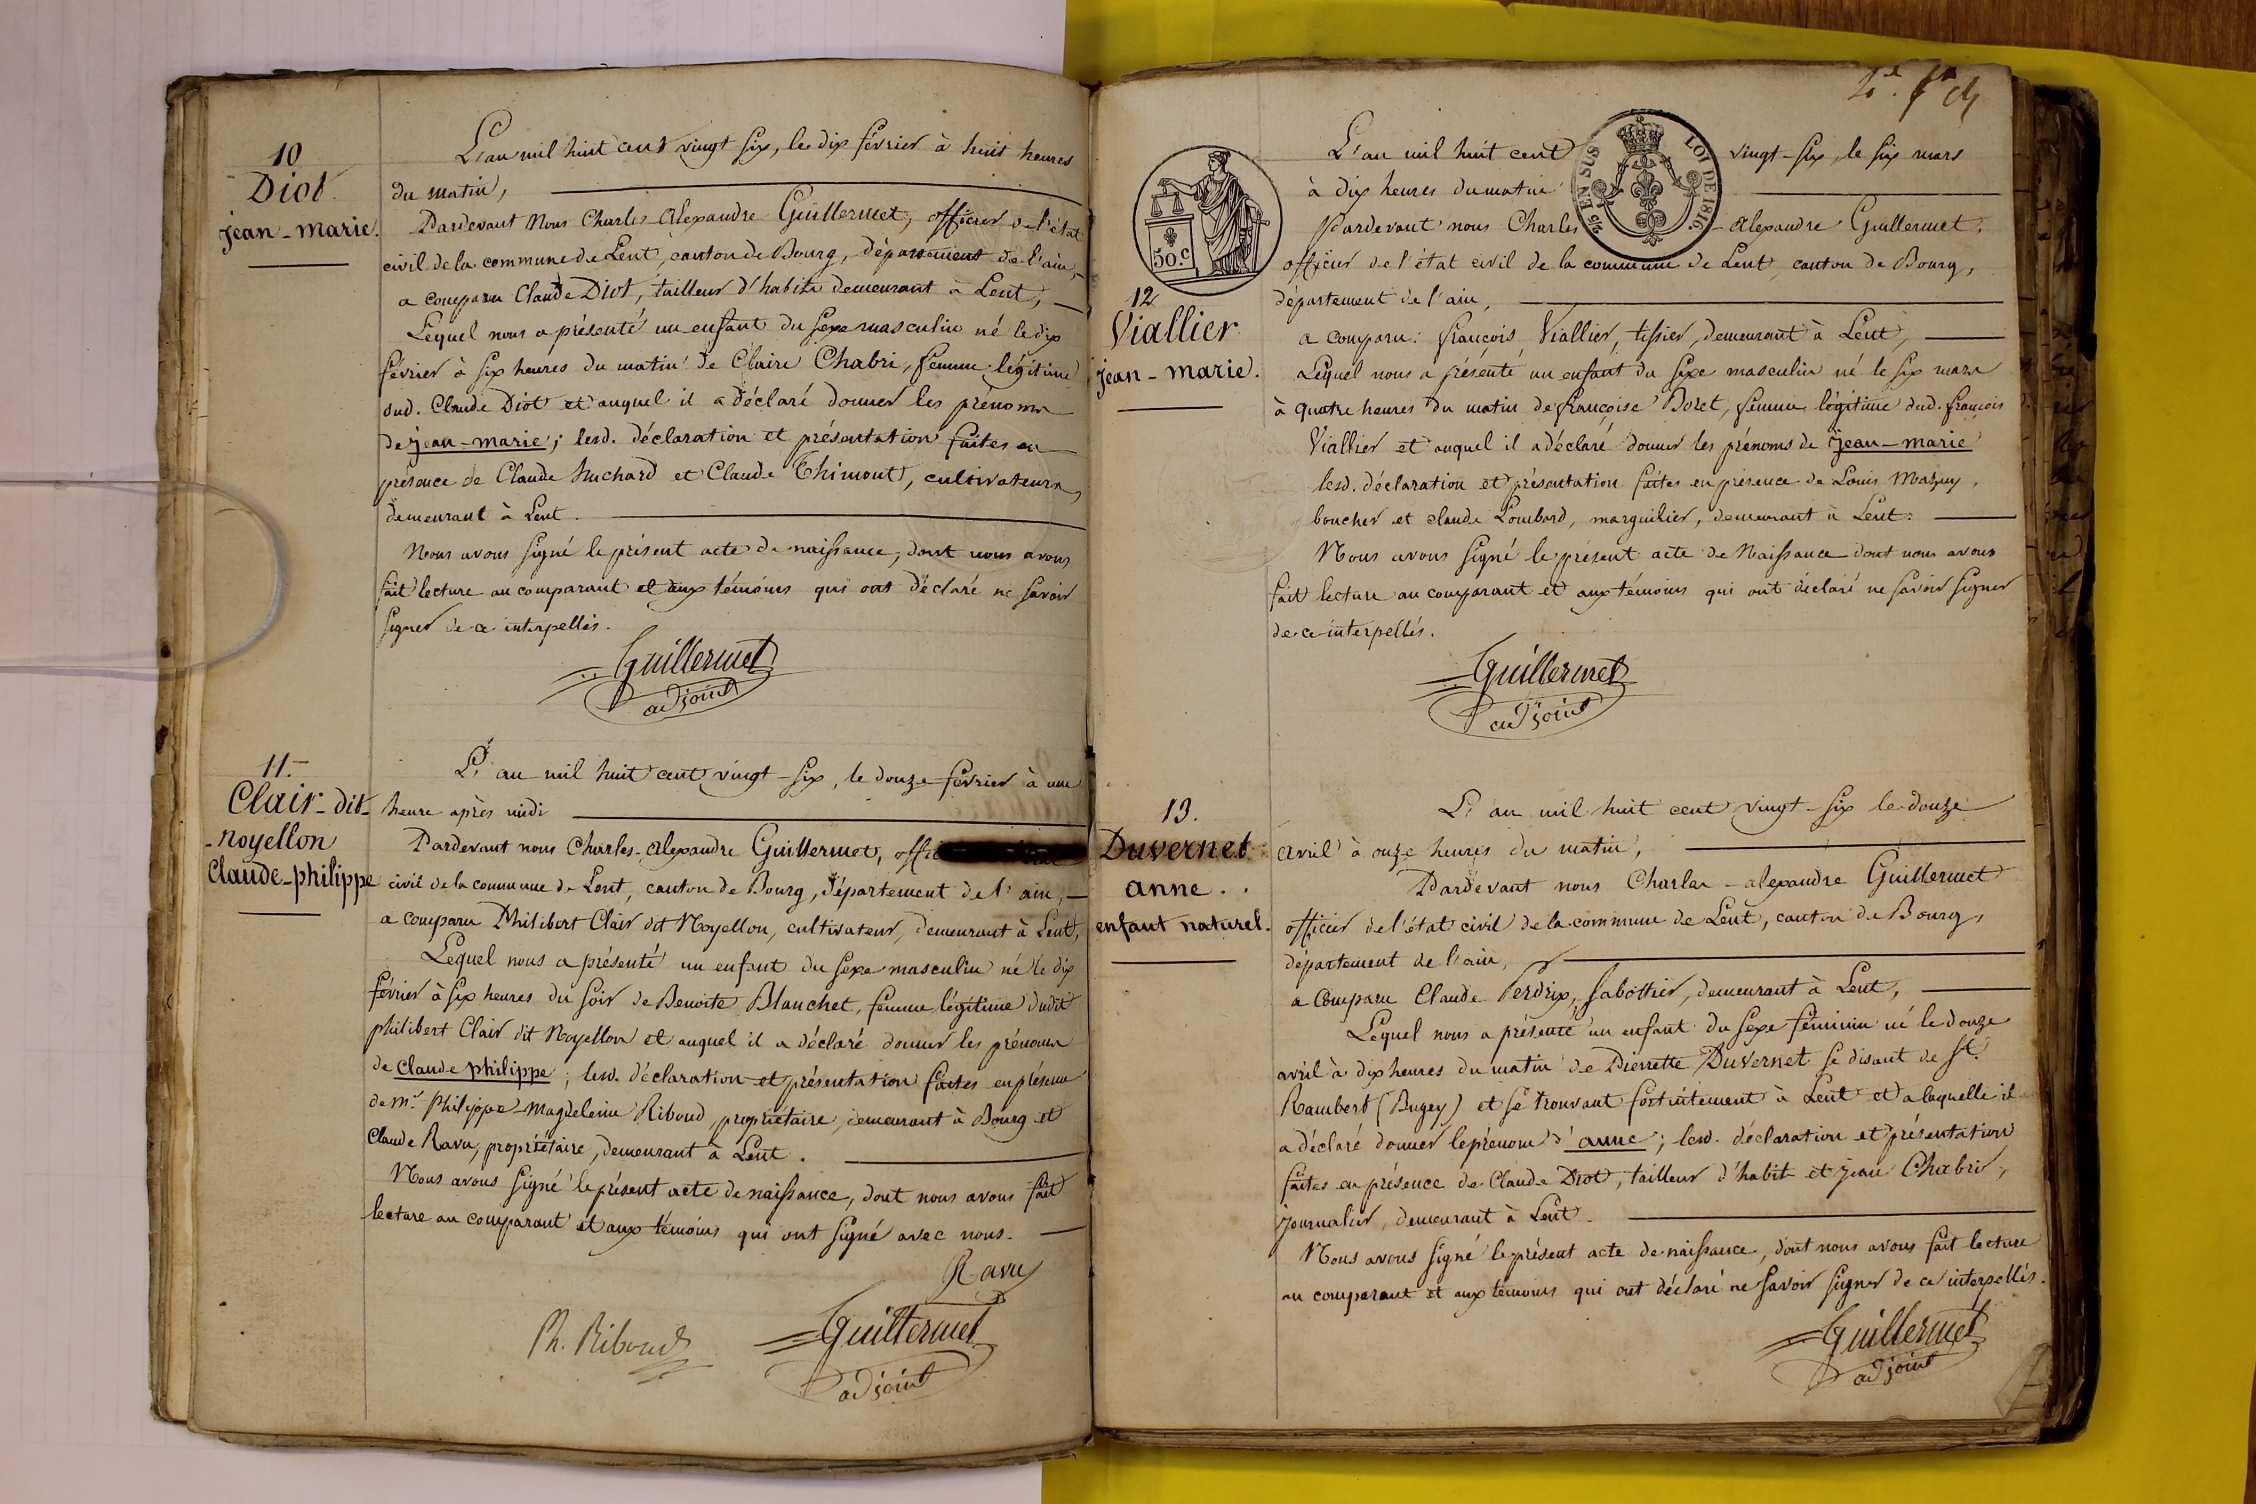 10
Diot
jean-marie.
L'an mil huit cent vingt six, le dix février à huit heures
du matin,
Pardevant Nous Charles-Alexandre Guillermet, officier de l'état
civil de la commune de Lent, canton de Bourg, département de l'ain,
a comparu Claude Diot, tailleur d'habits demeurant à Lent,
Lequel nous a présenté un enfant du sexe masculin né le dix
février à six heures du matin de Claire Chabri, femme légitime
dud. Claude Diot et auquel il a déclaré donner les prénoms
de jean-marie; lesd. déclaration et présentation faites en
présence de Claude Huchard et Claude Thimont, cultivateurs,
demeurant à Lent.
Nous avons signé le présent acte de naissance, dont nous avons
fait lecture au comparant et aux témoins qui ont déclaré ne savoir
signer de ce interpellés.
Guillermet
adjoint
11.
Clair-dit-
-noyellon
Claude-philippe
L'an mil huit cent vingt-six, le douze février à une
heure après midi
Pardevant nous Charles-Alexandre Guillermet,
civil de la commune de Lent, canton de Bourg, département de l'ain,
a comparu Philibert Clair dit Noyellon, cultivateur, demeurant à Lent,
Lequel nous a présenté un enfant du sexe masculin né le dix
février à six heures du soir de Benoite Blanchet, femme légitime dudit
philibert Clair dit Noyellon et auquel il a déclaré donner les prénoms
de Claude philippe; lesd. déclaration et présentation faites en présence
de Mr. Philippe-Magdeleine Riboud, propriétaire, demeurant à Bourg et
Claude Ravu, propriétaire, demeurant à Lent.
Nous avons signé le présent acte de naissance, dont nous avons fait
lecture au comparant et aux témoins qui ont signé avec nous.
Ravu
Ph. Riboud
Guillermet
adjoint
25 EN SUS
LOI DE 1816.
50.C
12
Viallier
jean-marie.
L'an mil huit cent vingt-six, le six mars
à dix heures du matin
Pardevant nous Charles-alexandre Guillermet,
officier de l'état civil de la commune de Lent, canton de Bourg,
département de l'ain,
a comparu: françois Viallier, tissier, demeurant à Lent,
Lequel nous a présenté un enfant du sexe masculin né le six mars
à quatre heures du matin de françoise Boret, femme légitime dud. françois
Viallier et auquel il a déclaré donner les prénoms de jean-marie
lesd. déclaration et présentation faites en présence de Louis Mazuy,
boucher et claude Lombard, marguilier, demeurant à Lent.
Nous avons signé le présent acte de Naissance dont nous avons
fait lecture au comparant et aux témoins qui ont déclaré ne savoir signer
de ce interpellés.
Guillermet
adjoint
13.
Duvernet
anne.
enfant naturel.
L'an mil huit cent vingt-six le douze
avril à onze heures du matin,
Pardevant nous Charles-alexandre Guillermet
officier de l'état civil de la commune de Lent, canton de Bourg,
département de l'ain,
a comparu Claude Perdrix, sabottier, demeurant à Lent,
Lequel nous a présenté un enfant du sexe féminin né le douze
avril à dix heures du matin de Pierrette Duvernet se disant de St.
Rambert (Bugey) et se trouvant fortuitement à Lent et a laquelle il
a déclaré donner le prénom d'anne; lesd. déclaration et présentation
faites en présence de Claude Diot, tailleur d'habit et jean Chabri,
journalier, demeurant à Lent.
Nous avons signé le présent acte de naissance, dont nous avons fait lecture
au comparant et aux témoins qui ont déclaré ne savoir signer de ce interpellés.
Guillermet
adjoint